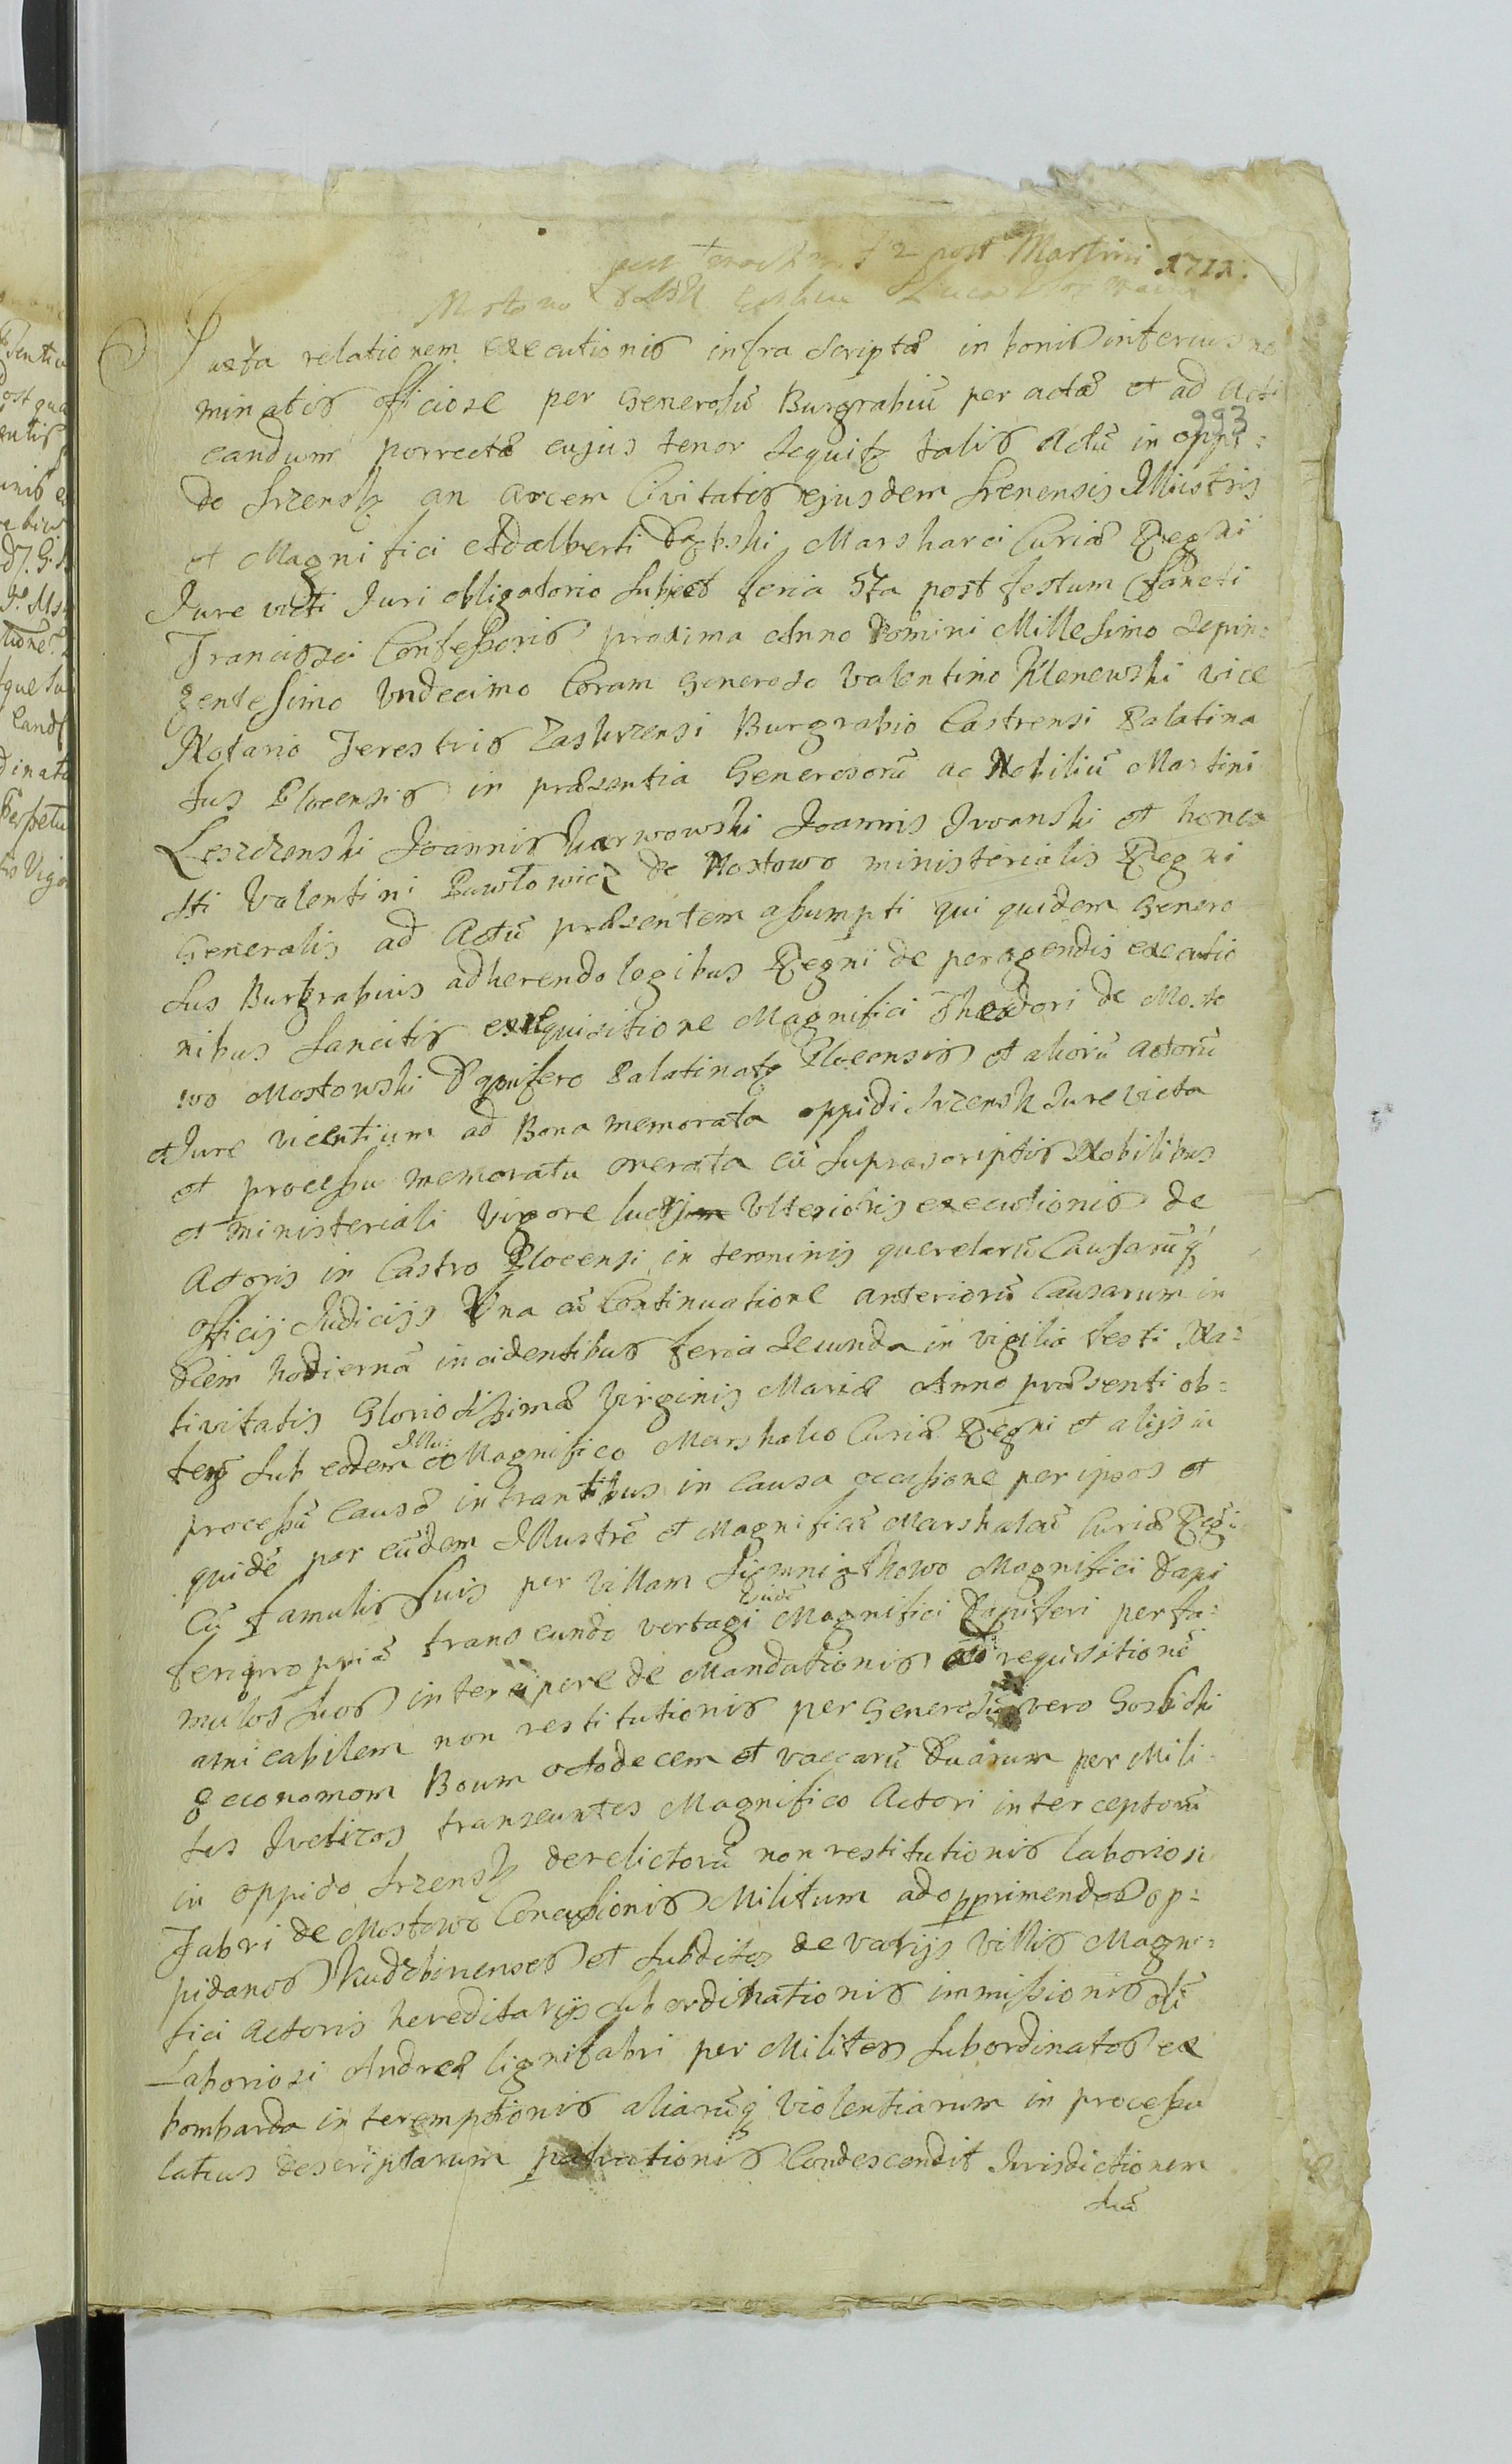 post Martini 1711.
Juxta relationem executionis infra scriptæ in bonis inferius no
minatis officiose per Generosũ Burgrabiũ per actæ et ad acti
candum porrectæ cujus tenor sequitȝ talis Actũ in oppi=
993
do Srzensk an arcem Civitatis ejusdem Srenensis Illustris
et Magnifici Adalberti Dąbski Marshalci Curiæ Regni
Jure victi Juri obligatorio subject feria 5ta post festum Sancti
Francisci Confessoris proxima Anno Domini Millesimo Septin=
gentesimo Undecimo Coram Generoso Valentino Klenewski vice
Notario Terestris Zaskrzensi Burgrabio Castrensi Palatina
tus Plocensis in præsentia Generosorũ ac Nobiliũ Martini
Leszczenski Joannis Karwowski Joannis Iwanski et hones
sti Valentini Pawłowicz de Mostowo ministerialis Regni
Generalis ad Actũ præsentem assumpti qui quidem Genero
sus Burgrabius adherendo legibus Regni de peragendis executio
nibus sancitis ex requisitione Magnifici Theodori de Mosto
wo Mostowski Dapifero Palatinatȝ Plocensis et aliorũ actorũ
et Jure vicentium ad Bona memorata oppidi Srzensk Jure victa
et processu memoratu onerata cũ suprascriptis Nobilibus
et ministeriali vigore lucri ulterioris executionis de
Actoris in Castro Plocensi in terminis querelarũ Causarũqȝ
officij Judicijs Una cũ Continuatione anteriorũ Causarum in
diem hodiernã incidentibus feria secunda in vigilia festi Na=
tivitatis Gloriosissimæ Virginis Mariæ Anno præsenti ob=
tent sub eodem Illu: et Magnifico Marshalco Curiæ Regni et alijs in
processũ Causæ intrantibus in causa occasione per ipsos et
quidẽ per eũdem Illustrẽ et Magnificũ Marshalcũ Curiæ Regni
Cũ famulis suis per villam Magnifici Dapi
feri propriã transeundo vertagi Magnifici Dapiferi per fa=
mulos suos intercipere de Mandationis ad requisitionẽ
amicabilem non restitutionis per Generosũ vero Gosticki
Oeconomom Boum octodecem et vaccarũ Duarum per Mili
tes Sveticos transeuntes Magnifico Actori interceptorũ
in oppido Srzensk derelictorũ non restitutionis laboriosi
Fabri de Mostowo Concussionis Militum ad opprimendos op=
pidanos Kudzbinenses et subditos de varijs villis Magni=
fici Actoris hereditarijs subordinationis immissionis oli
Laboriosi Andreæ lignifabri per Milites subordinatos ex
bombarda interemptionis aliarũqȝ violentiarum in processu
latius descriptarum patrationis Condescendit Jurisdictionem
suã